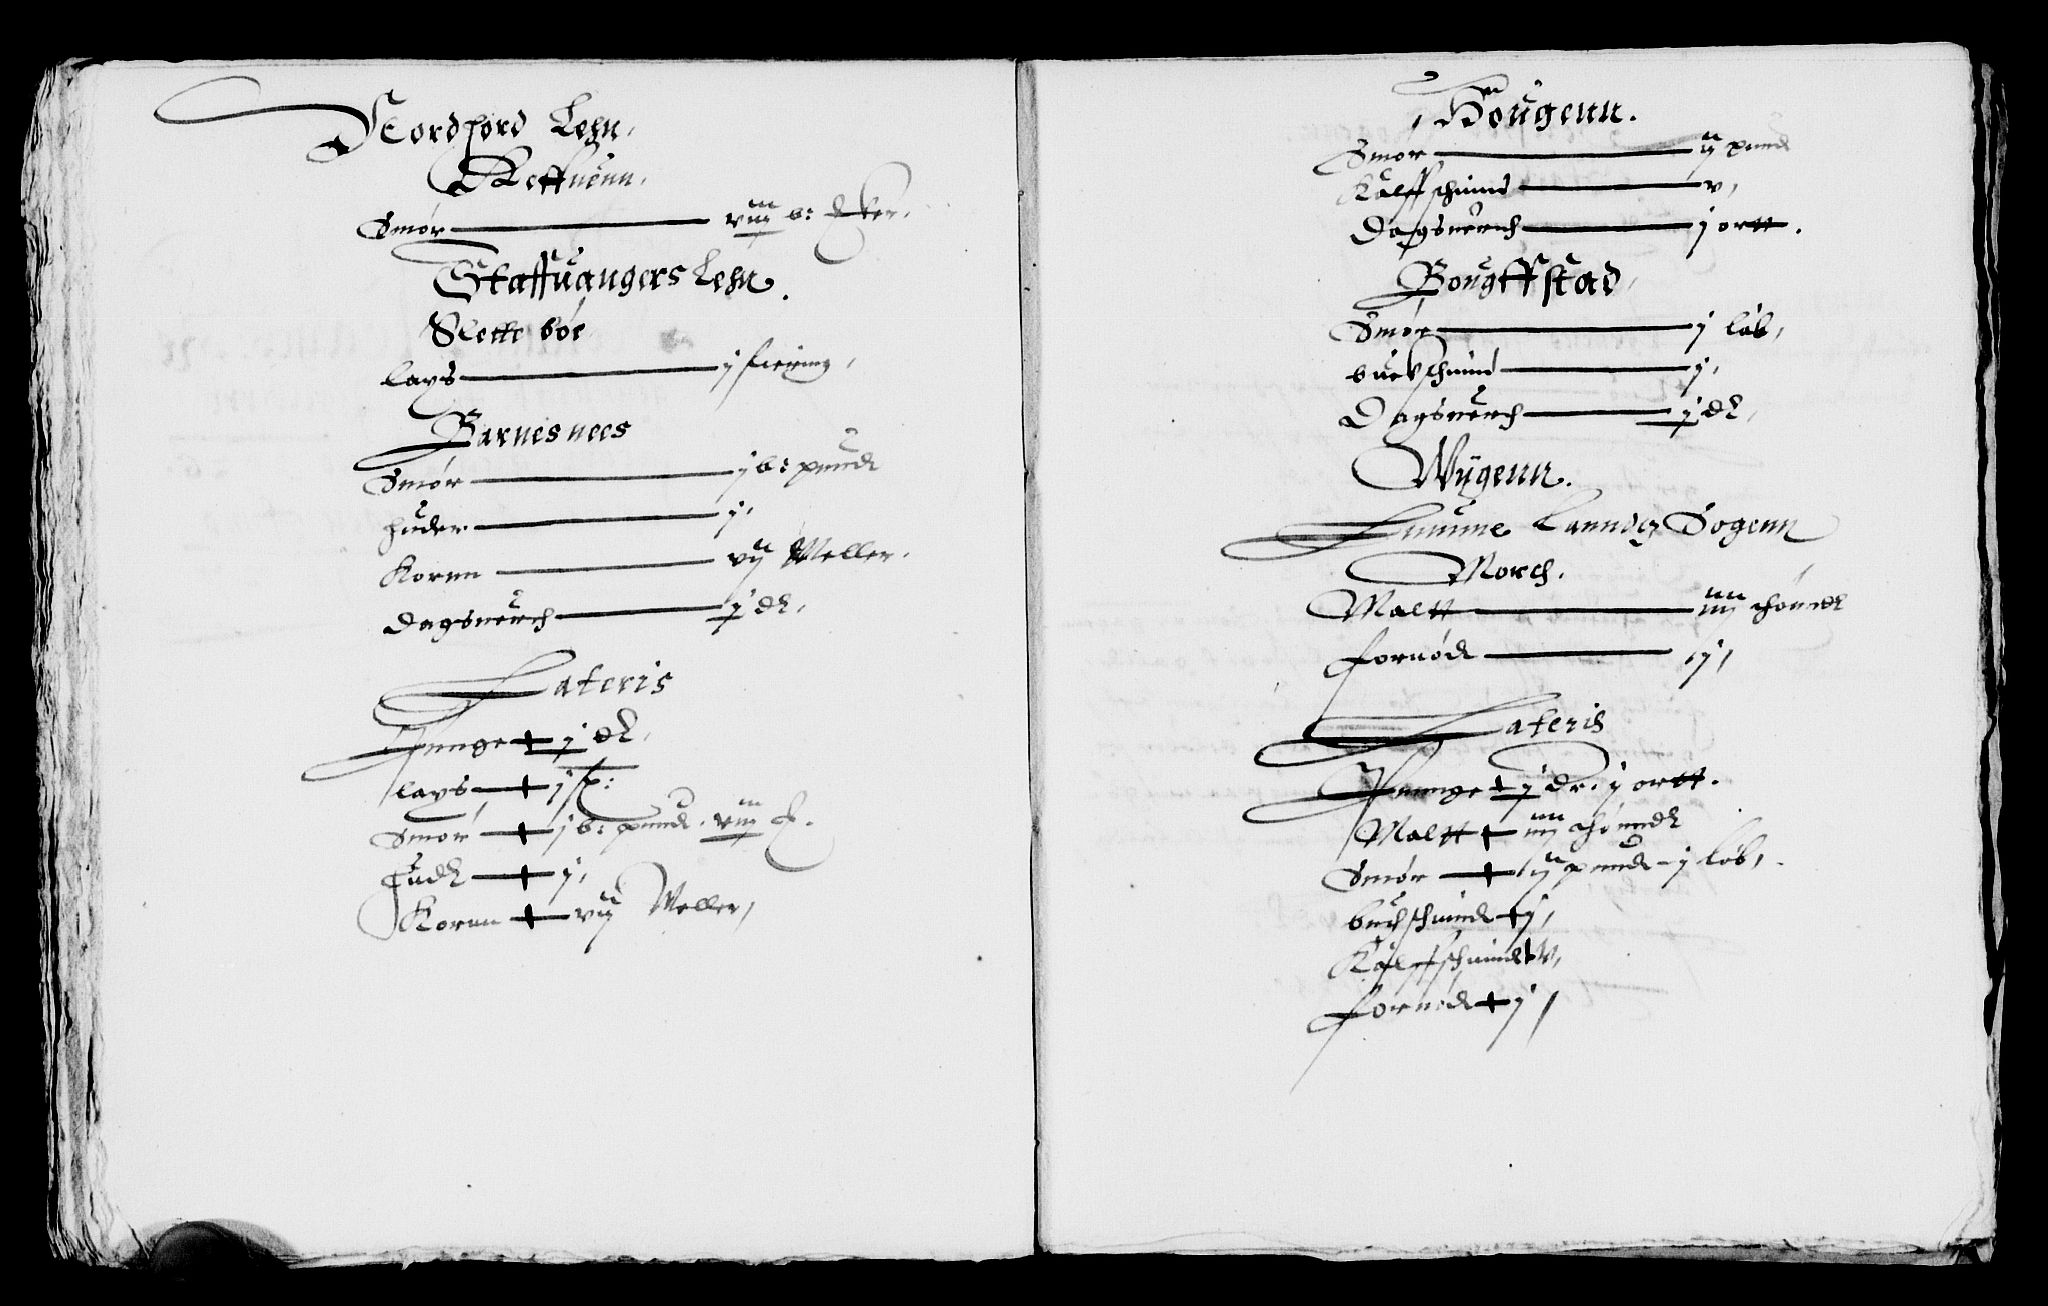 Nordfiord Lehn,
Reffnenn.
Smør viij b: Mker.
Staffuangers Lehn.
Slettebøe
laxs j fiering,
Barnesnees
Smør j b: pundt
huder j,
Kornn vij Meller.
dagsuerch j dr.
Lateris
Penge j dr.
laxs j f:
Smør j b: pundt. viij
Hudr j,
Kornn vij Meller,
Hougenn.
Smør ij pund
Kalffschind v,
Dagsuerch j ortt.
Bougstad,
Smør j løb,
buckschind j,
Dagsuerch j dr.
Wygenn.
Lanndz Sogenn
Morch.
Maltt iiij
fornødt j,
Lateris
Penge j dr: j ortt.
Maltt iiij
Smør ij pundt j løb,
buchschindt j,
Kalffschindt v,
fornødt j,